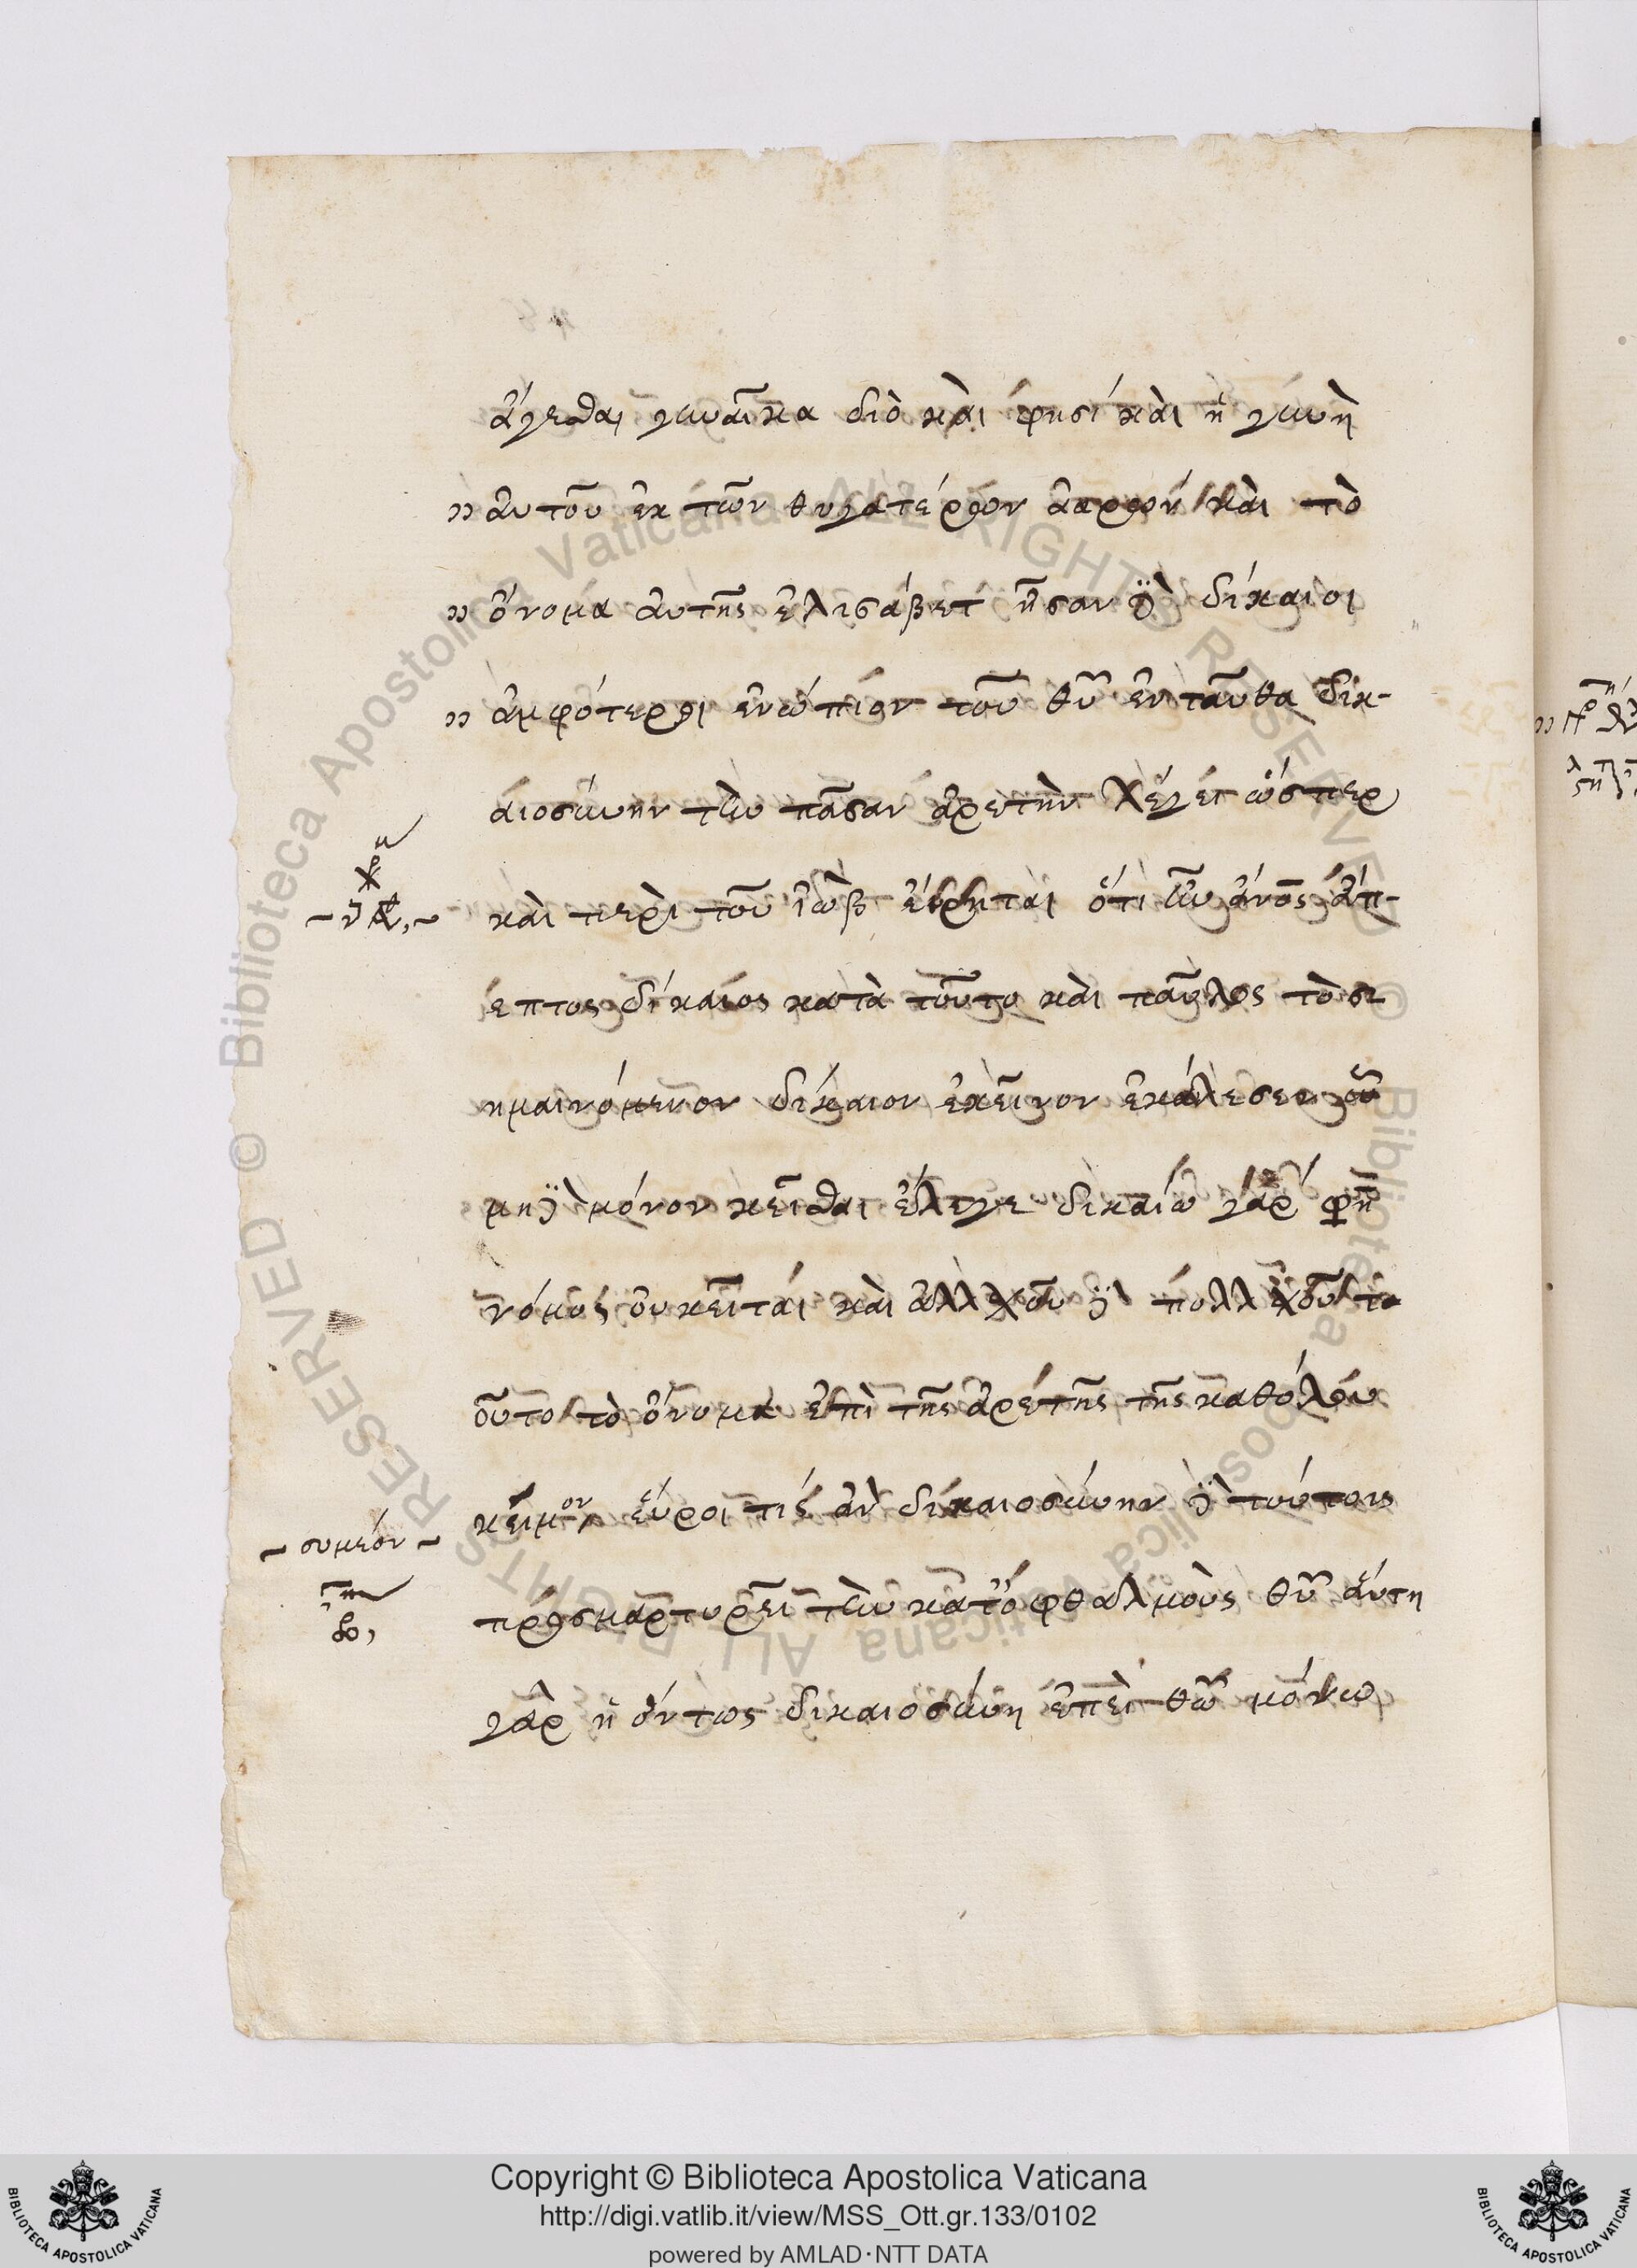 ἄγεσθαι γυναῖκα διὸ καὶ φησί καὶ ἡ γυνὴ
» αὐτοῦ ἐκ τῶν θυγατέρων ἀαρών καὶ τὸ
» ὄνομα αὐτῆς ἐλισάβετ ἦσαν δὲ δίκαιοι
» ἀμφότεροι ἐνώπιον τοῦ θῦ ἐνταῦθα δικ-
αιοσύνην τὴν πᾶσαν ἀρετὴν λέγει ὥσπερ
καὶ περὶ τοῦ ἰὼβ εἴρηται ὅτι ἦν ἄνος ἄπ-
επτος δίκαιος κατὰ τοῦτο καὶ παῦλος τὸ σ
ημαινόμενον δίκαιον ἐκεῖνον ἐκάλεσεν ᾧ
μηδὲ νόμον κεῖσθαι ἔλεγε δικαίω γάρ φη
νόμος οὐ κεῖται καὶ ἀλλχοῦ δὲ πολλχοῦ τ
οῦτο τὸ ὄνομα ἐπὶ τῆς ἀρετῆς τῆς καθόλου
κείμον εὕροι τις ἂν δικαιοσύνην δὲ τούτοις
προσμαρτυρεῖ τὴν κατ' ὀφθαλμοὺς θῦ αὕτη
γὰρ ἡ ὄντως δικαιοσύνη ἐπεὶ θῶ μόνω
- συμεόν -
Copyright © Biblioteca Apostolica Vaticana
http://digi.vatlib.it/view/MSS_Ott.gr.133/0102
powered by AMLAD·NTT DATA
BIBLIOTECA APOSTOLICA VATICANA
BIBLIOTECA APOSTOLICA VATICANA
© Biblioteca Apostolica Vaticana ALL RIGHTS RESERVED
© Biblioteca Apostolica Vaticana ALL RIGHTS RESERVED